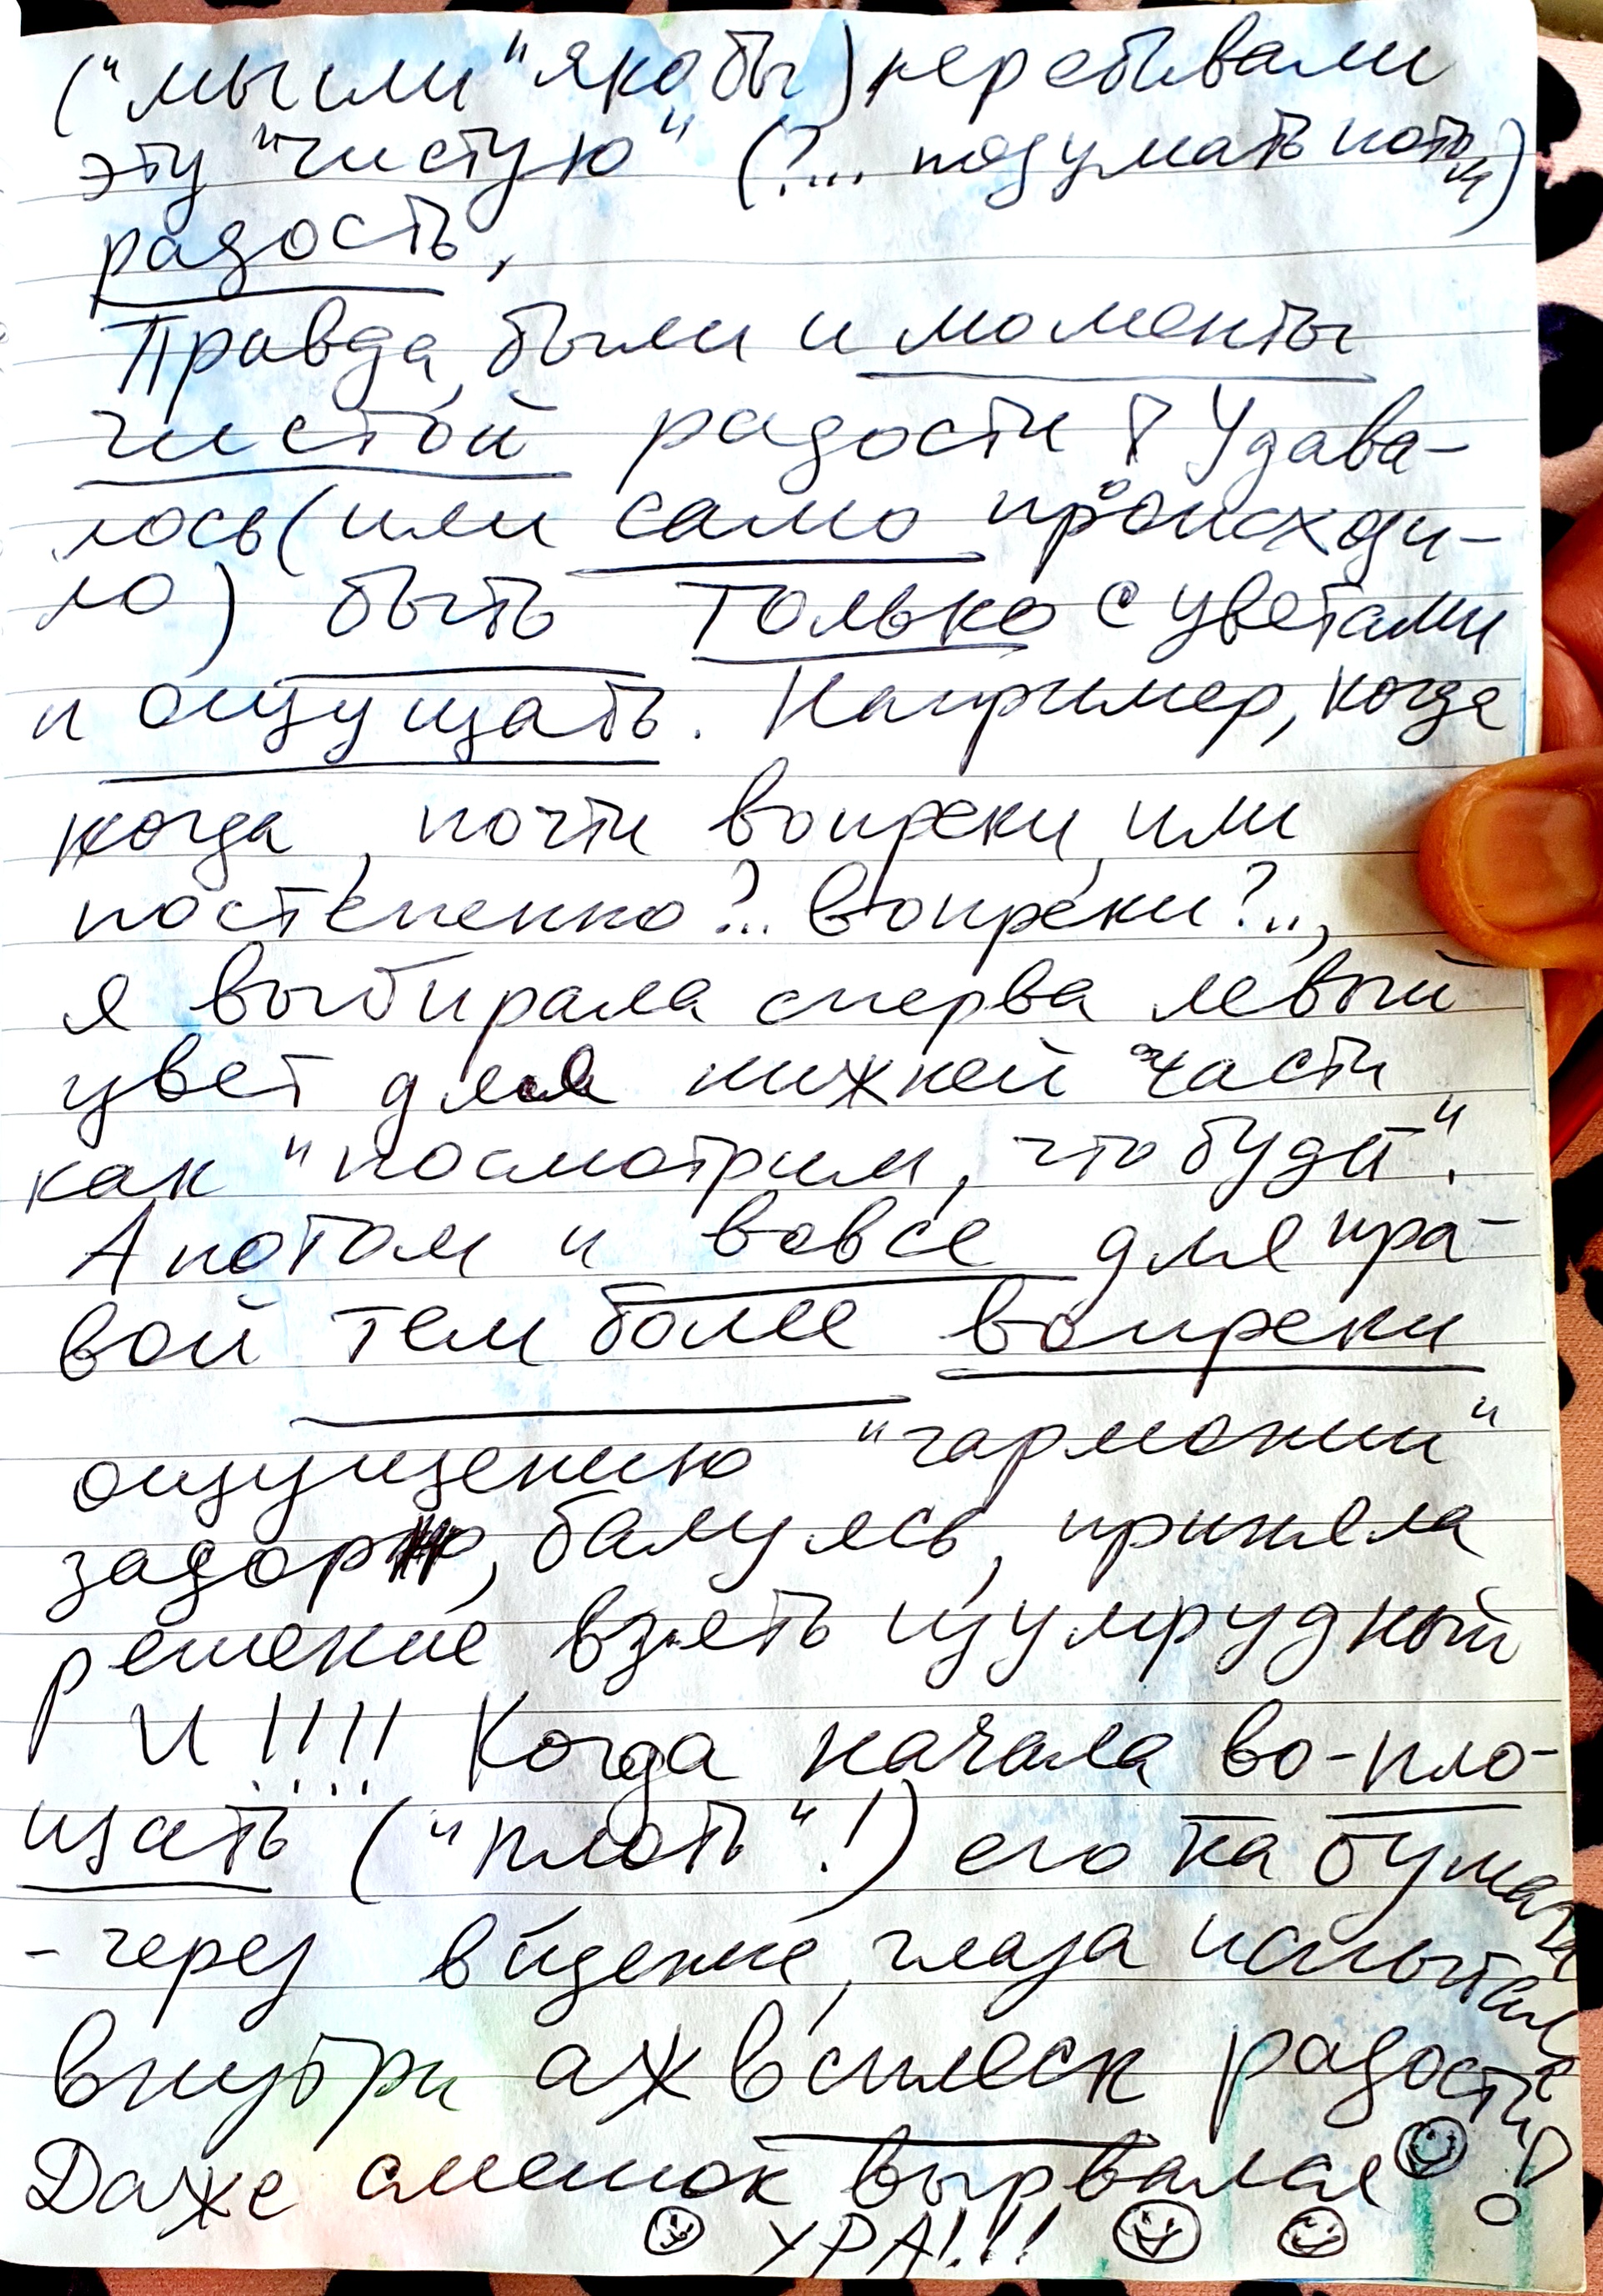 ("мыли" якобы) перебивали
эту "чистую" (?... подумать потом)
радость,
Правда, были и моменты
чистой радости! Удава-
лось (или само происходи-
ло) быть только с цветами
и ощущать. Например, когда
когда, почти вопреки, или
постепенно?.. вопреки?..,
я выбирала сперва левый
цвет для нижней части
как "посмотрим, что будет".
А потом и вовсе для пра-
вой тем более вопреки
ощущению "гармонии"
задорно, балуясь, приняла
решение взять изумрудный
И!!!! Когда начала во-пло-
щать ("плоть"!) его на бумаге
- через видение, глаза испытала
внутри аж всплеск радости!
Даже смешок вырвался
УРА!!!